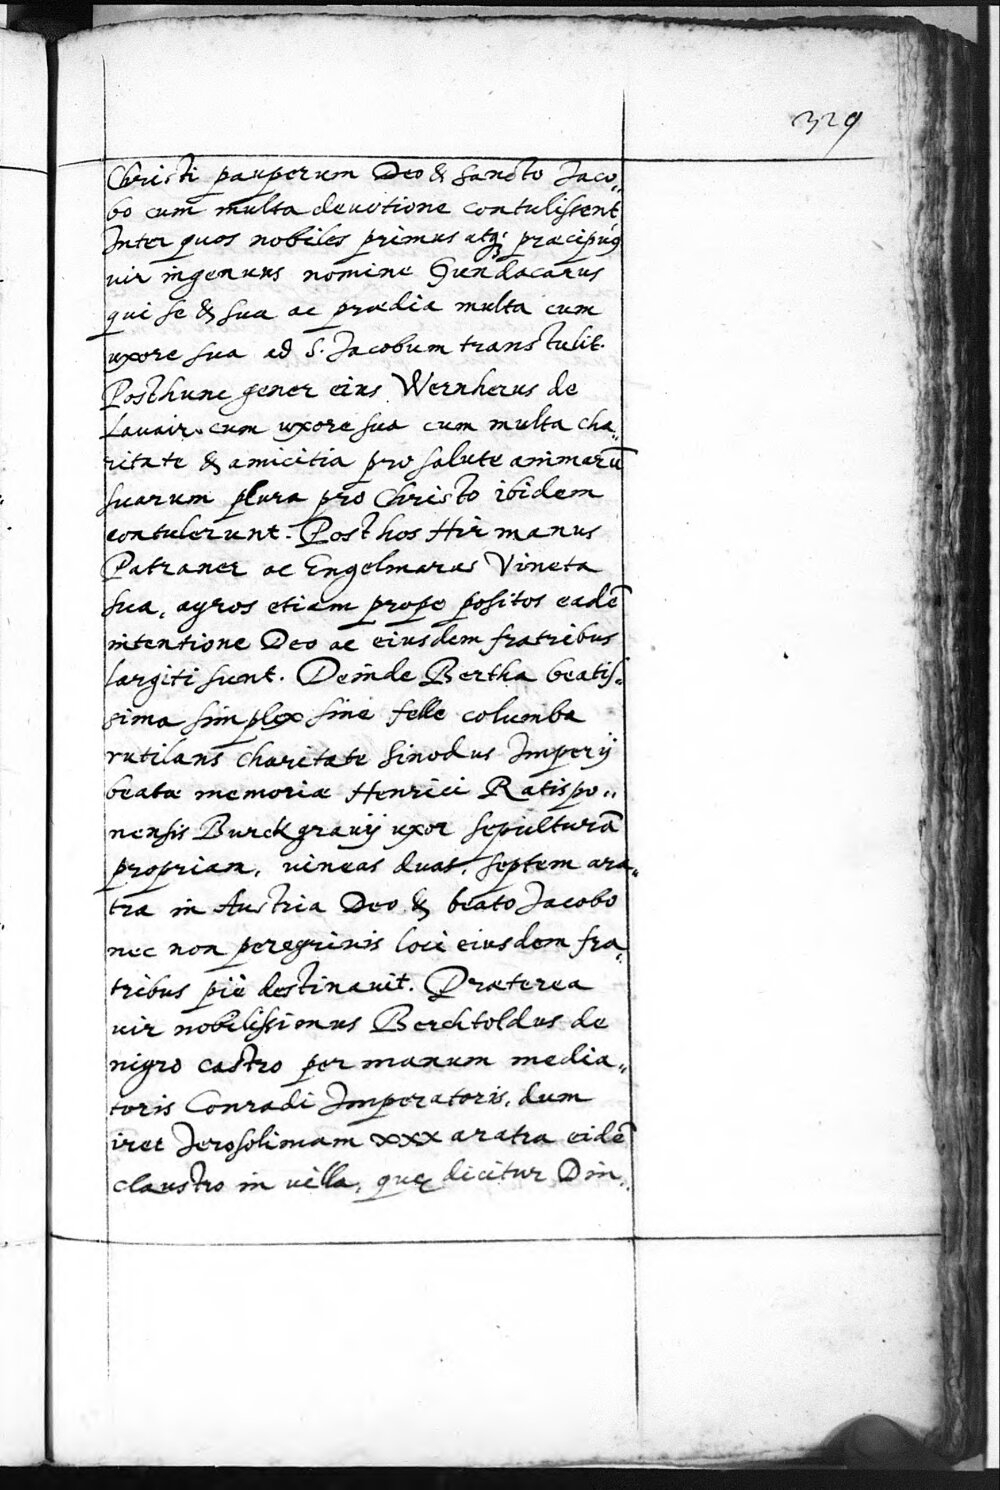 329
Christi pauperum Deo & Sancto Jaco„
bo cum multa deuotione contulissent
Inter quos nobiles primus atq; præcipuꝰ
uir ingenuus nomine Gundacarus
qui se & sua ac prædia multa cum
uxore sua ad S. Jacobum transtulit.
Post hunc gener eius Wernherus de
Lauair cum uxore sua cum multa cha„
ritate & amicitia pro salute animarū
suarum plura pro Christo ibidem
contulerunt. Post hos Hirmanus
Patraner ac Engelmarus Vineta
sua, agros etiam prope positos eadē
intentione Deo ac eiusdem fratribus
largiti sunt. Deinde Bertha beatis„
sima simplex sine felle columba
rutilans charitate Sinodus Imperij
beatæ memoriæ Henrici Ratispo„
nensis Burckgrauij uxor sepulturā
propriam, uineas duas, septem ara„
tra in Austria Deo & beato Jacobo
nec non peregrinis loci eiusdem fra„
tribus piè destinauit. Præterea
uir nobilissimus Berchtoldus de
nigro castro per manum media„
toris Conradi Imperatoris, dum
iret Jerosolimam xxx aratra eidē
claustro in uilla, quę dicitur Din„